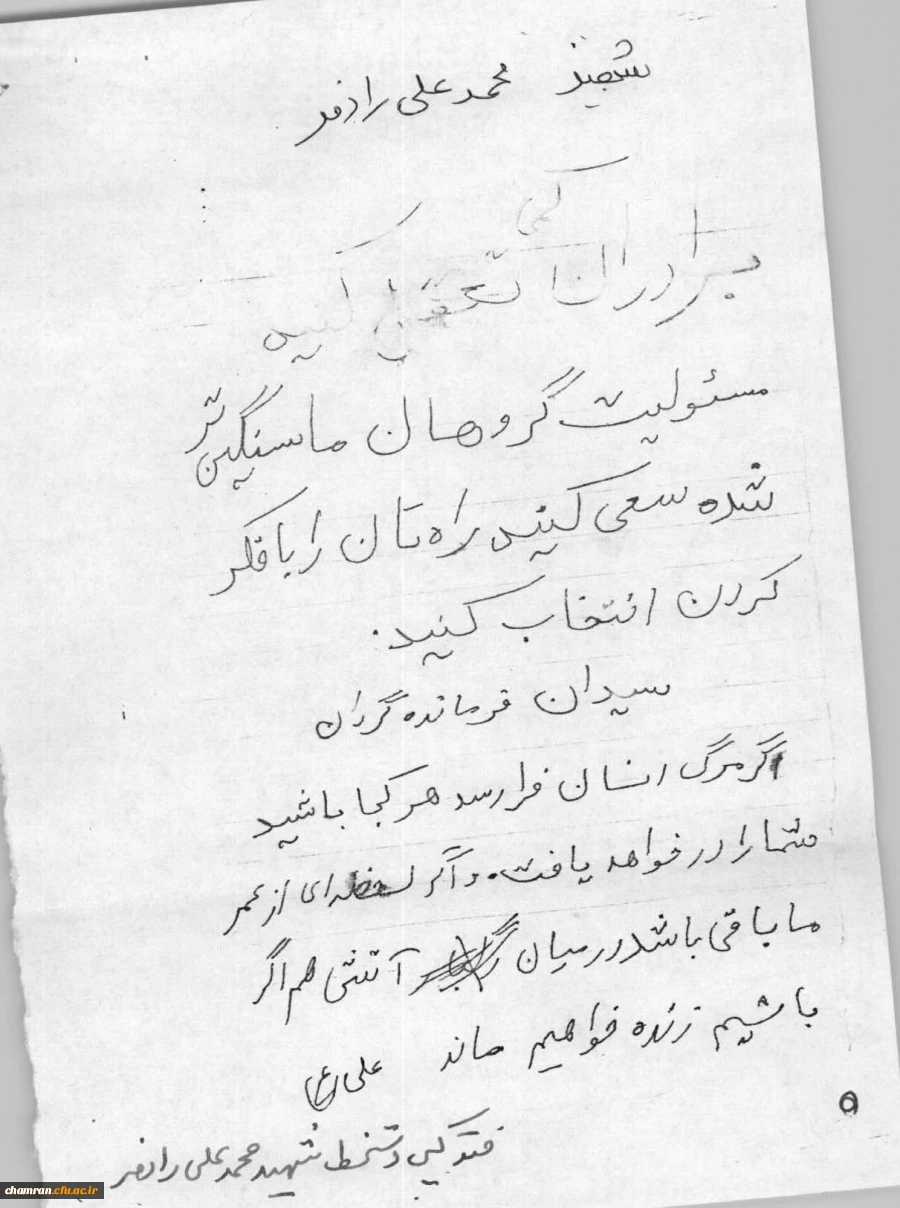 شهید محمد علی رادفر
کمی
برادران تعقل کنید
مسئولیت گروهان ما سنگین تر
شده سعی کنید راه تان را با فکر
کردن انتخاب کنید.
سیدان فرمانده گردان
اگر مرگ انسان فرا رسد هر کجا باشید
شما را در خواهد یافت. و اگر لحظه ای از عمر
ما باقی باشد در میان آتش هم اگر
باشیم زنده خواهیم ماند علی (ع)
۵
فتوکپی دستخط شهید محمد علی رادفر
chamran.cfu.ac.ir